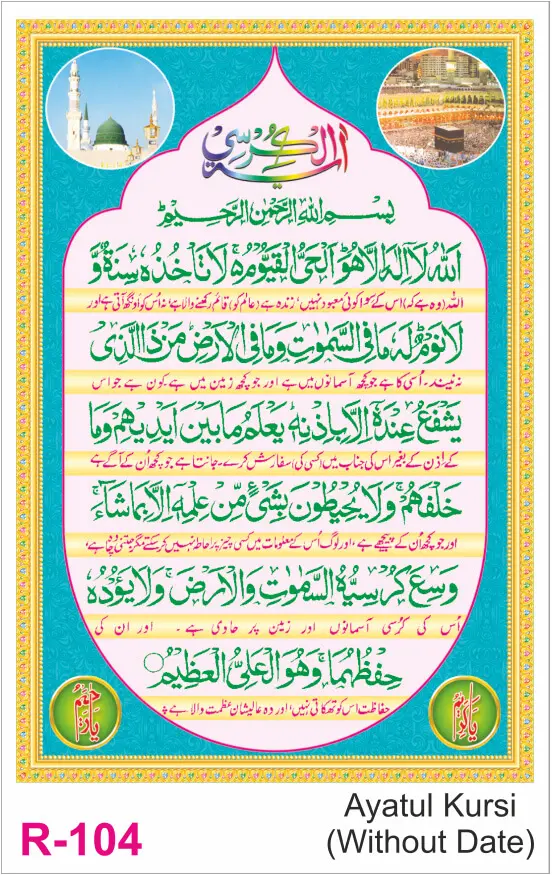 آیۃ الکرسی
بِسْمِ اللهِ الرَّحْمٰنِ الرَّحِيْمِ
اَللهُ لَآ اِلٰهَ اِلَّا هُوَ اَلْحَیُّ الْقَيُّوْمُ ۚ لَا تَاْخُذُهٗ سِنَةٌ وَّ
اللہ (وہ ہے کہ) اس کے سوا کوئی معبود نہیں، زندہ ہے (عالم کو) قائم رکھنے والا ہے، نہ اُس کو اونگھ آتی ہے اور
لَا نَوْمٌ لَهٗ مَا فِی السَّمٰوٰتِ وَمَا فِی الْاَرْضِ مَنْ ذَا الَّذِیْ
نہ نیند۔ اُسی کا ہے جو کچھ آسمانوں میں ہے اور جو کچھ زمین میں ہے۔ کون ہے جو اس
يَشْفَعُ عِنْدَهٗٓ اِلَّا بِاِذْنِهٖ يَعْلَمُ مَا بَيْنَ اَيْدِيْهِمْ وَمَا
کے اُذن کے بغیر اس کی جناب میں کسی کی سفارش کرے۔ جانتا ہے جو کچھ اُن کے آگے ہے
خَلْفَهُمْ ۚ وَلَا يُحِيْطُوْنَ بِشَیْءٍ مِّنْ عِلْمِهٖٓ اِلَّا بِمَا شَآءَ ۚ
اور جو کچھ اُن کے پیچھے ہے، اور لوگ اُس کے معلومات میں کسی چیز پر احاطہ نہیں کر سکتے مگر جتنی وہ چاہے،
وَسِعَ كُرْسِيُّهُ السَّمٰوٰتِ وَالْاَرْضَ ۚ وَلَا يَؤُدُهٗ
اُس کی کُرسی آسمانوں اور زمین پر حاوی ہے اور ان کی
حِفْظُهُمَا ۚ وَهُوَ الْعَلِیُّ الْعَظِيْمُ
حفاظت اس کو تھکاتی نہیں، اور وہ عالیشان عظمت والا ہے
R-104
Ayatul Kursi
(Without Date)